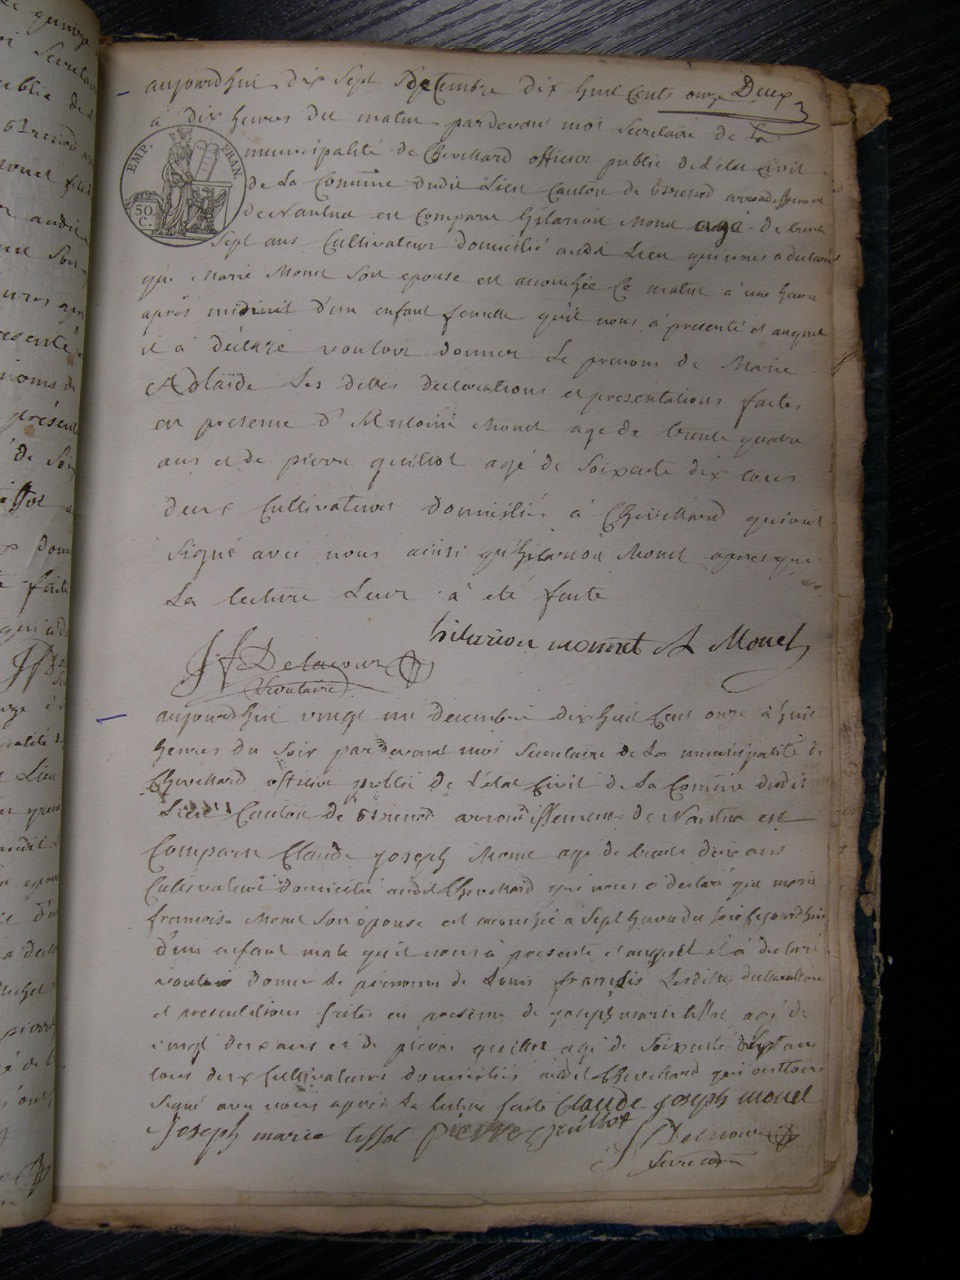 aujourdhui dix sept décembre dix huit cents onze Deux
à dix heures du matin pardevant moi secretaire de la
municipalité de Chevillard officier public de Letat civil
de La Commune dudit Lieu Canton de brenod arrondissement
de Nantua est Comparu hilarion Monet agé de trente
sept ans Cultivateur domicilié audit Lieu qui nous a déclaré
que Marie Monet Son epouse est accouchée Ce matin à une heure
après midinuit d'un enfant femelle qu'il nous à présenté et auquel
il à déclaré vouloir donner Le prenom de Marie
Adelaïde Les dittes declarations et presentations faites
en presence d'Antoine Monet age de trente quatre
ans et de pierre guillot agé de Soixante dix tous
deux Cultivateurs domiciliés à Chevillard qui ont
Signé avec nous ainsi qu'hilarion Monet apres que
La lecture Leur à été faite
hilarion monnet A Monet
J f Delacour
Secretaire
EMP. FRAN
50 C.
aujourdhui vingt un decembre dix huit Cent onze à huit
heures du Soir pardevant moi Secretaire de La municipalité de
Chevillard officier public de L'etat Civil de La Commune dudit
Lieu Canton de brenod arrondissement de Nantua est
Comparu Claude joseph Monet age de trente deux ans
Cultivateur domicilié audit Chevillard qui nous a declaré que marie
françoise Monet Son épouse est accouchée à Sept heures du Soir
d'un enfant male qu'il nous à presenté et auquel il à declaré
vouloir donner Le prenom de Louis françois Lesdittes declarations
et presentations faites en presence de joseph marie tissot agé de
vingt deux ans et de pierre guillot agé de Soixante dix ans
tous deux Cultivateurs domiciliés audit Chevillard qui ont tous
Signé avec nous après La lecture faite Claude joseph monet
Joseph marie tissot pierre guillot
J f Delacour
Secretaire